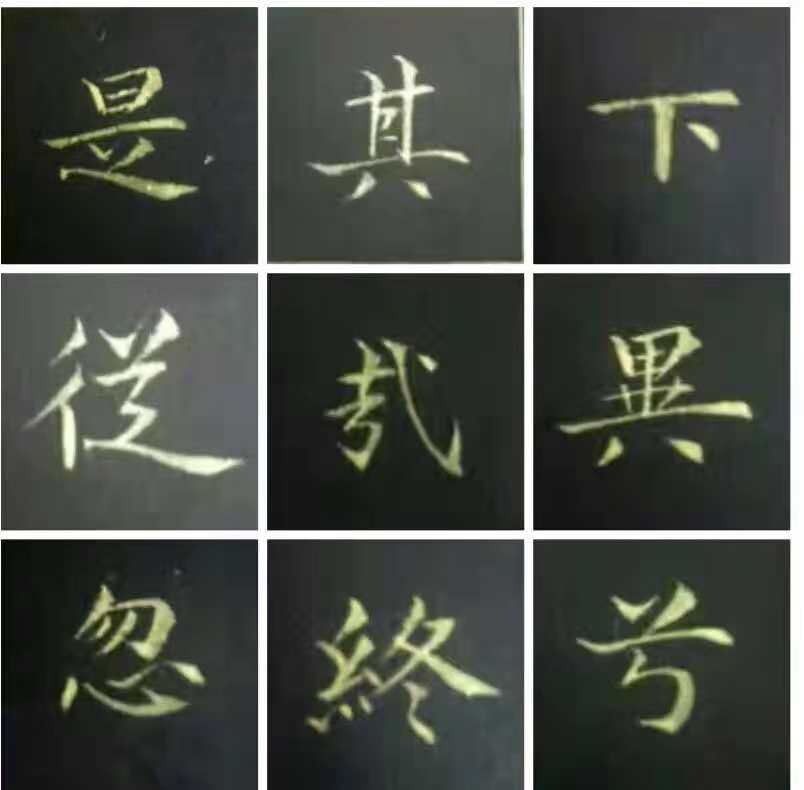 是其下
従哉異
忽終兮